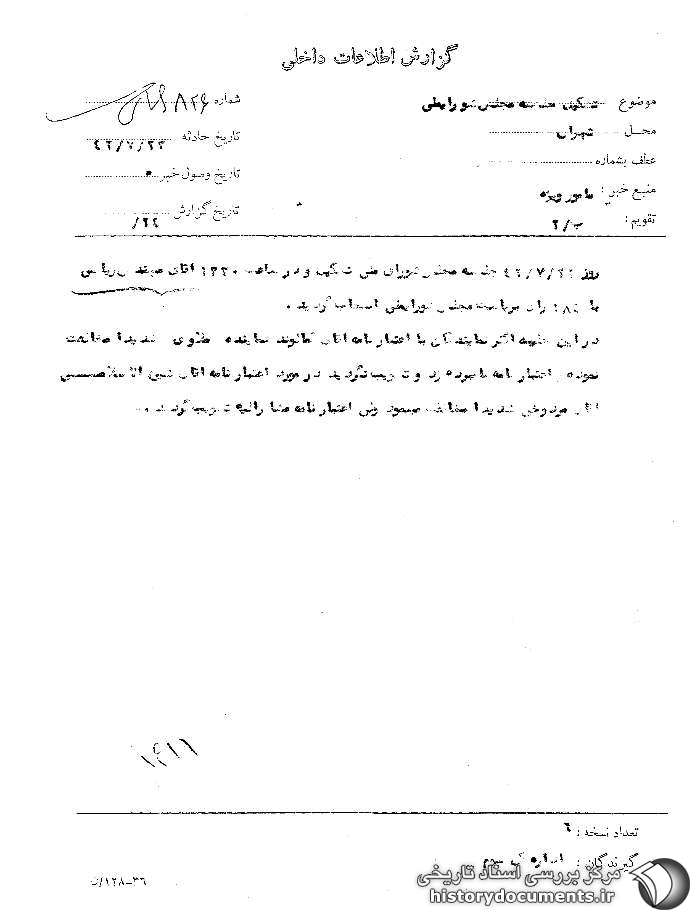 گزارش اطلاعات داخلی
موضوع تشکیل جلسه مجلس شورایملی
شماره ۸۲۶
محل تهران
تاریخ حادثه ۴۲/۷/۲۳
عطف بشماره
تاریخ وصول خبر
منبع خبر: مامور ویژه
تاریخ گزارش ۲۴/
تقویم: ب/۲
روز ۴۲/۷/۲۳ جلسه مجلس شورای ملی تشکیل و در ساعت ۱۲۳۰ آقای مهندس ریاضی
با ۱۸۴ رای بریاست مجلس شورایملی انتخاب گردید.
در این جلسه اکثر نمایندگان با اعتبار نامه آقای نماینده شدیدا مخالفت
نموده و اعتبار نامه نامبرده رد و تصویب نگردید در مورد اعتبار نامه آقای شیخ الاسلامی
آقای مردوخی شدیدا مخالفت مینمود ولی اعتبار نامه مشارالیه تصویب گردید.
تعداد نسخه: ۶
گیرندگان: اداره کل سوم
۱۲۸-۳۶/ت
مرکز بررسی اسناد تاریخی
historydocuments.ir